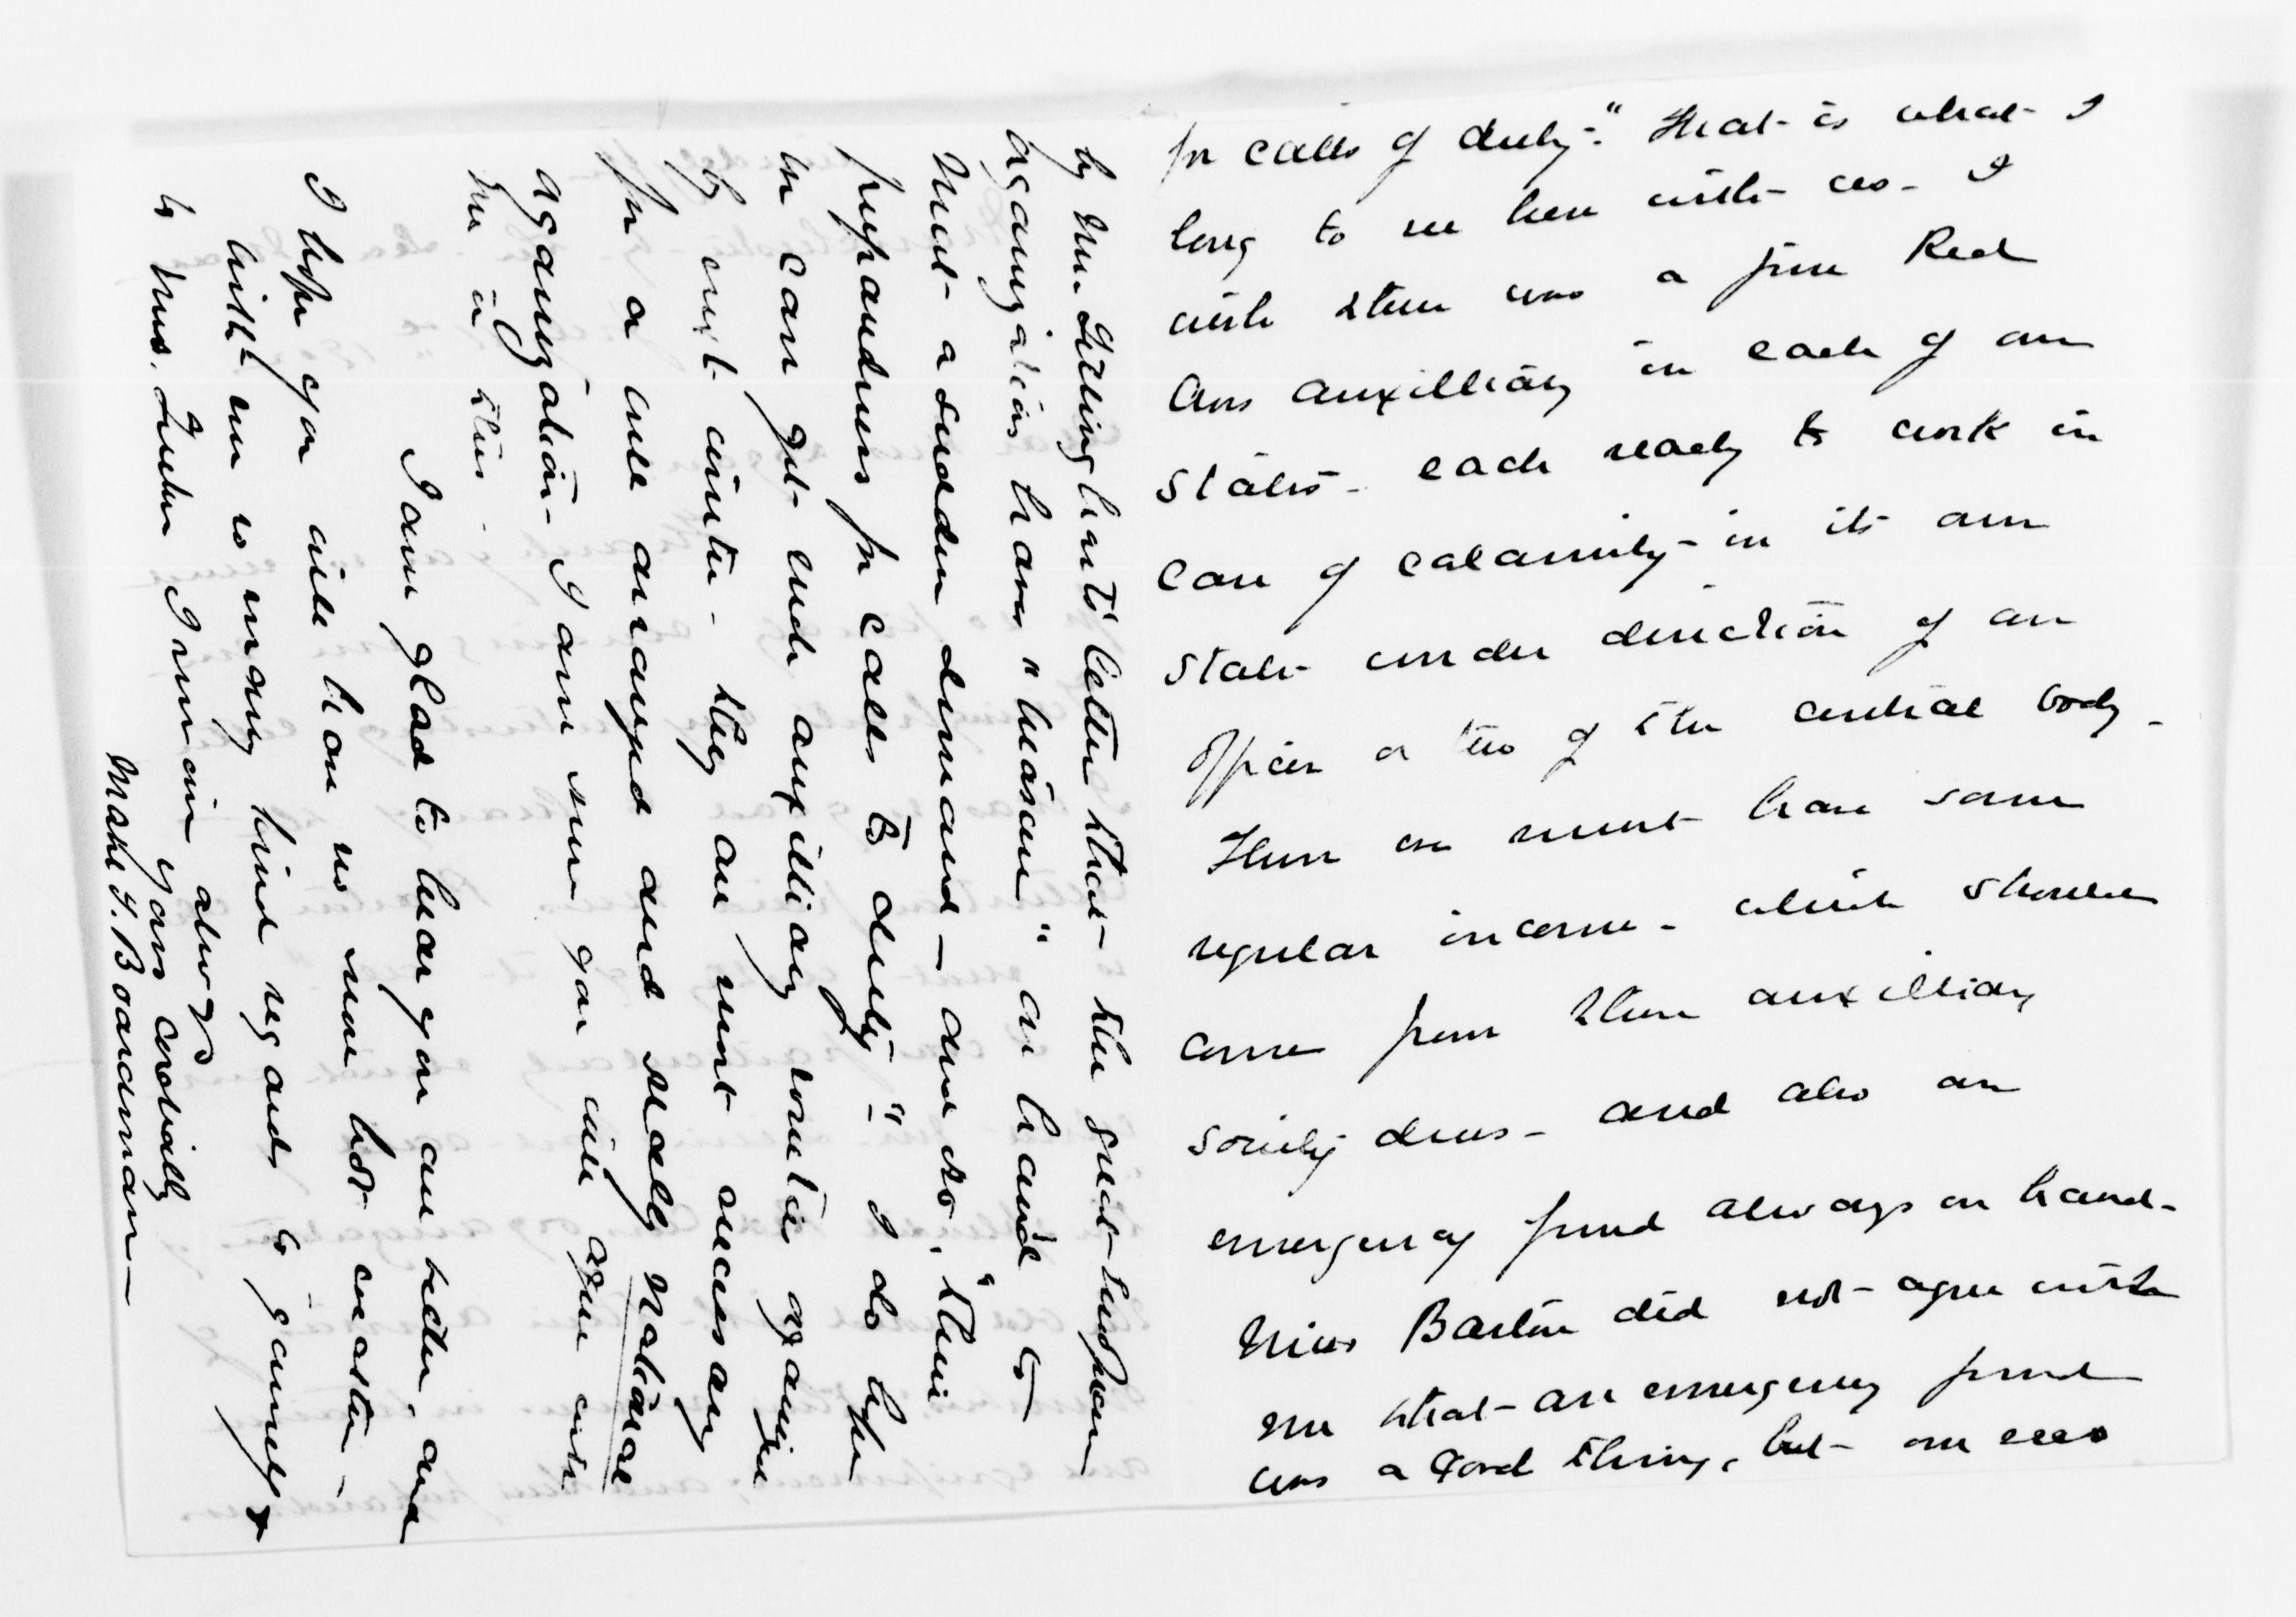 for calls of duty." That is what I
long to see here with us - I
wish there was a fine Red
Cross auxilliary in each of our
States - each ready to work in
case of calamity - in its own
State under direction of an
Officer or two of the central body -
Then we must have some
regular income - which should
come from these auxilliary
society dues - and also an
emergency fund always on hand -
Miss Barton did not agree with
me that an emergency fund
was a good thing, but one sees
by Mr. Gillinghan's letter that the great European
organizations have "treasure" on hand to
meet a sudden demand - and so, "their
preparedness for calls to duty" - I do hope
we can get such auxilliary societies organized
by next winter - they are most necessary
for a well arranged and really National
organization - I am sure you will agree with
me in this.
I am glad to hear you are better, and
I hope you will have no more hot weather -
With our so many kind regards to yourself &
to Mrs. I remain always
yours cordially
Mabel T. Boardman -